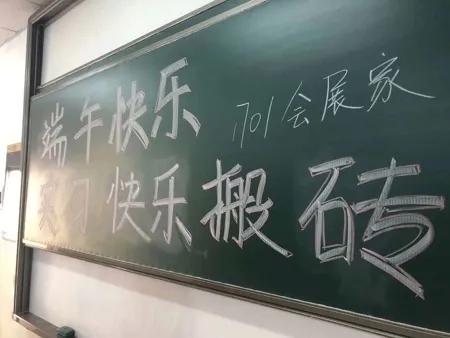 端午快乐 1701会展家
实习快乐搬砖